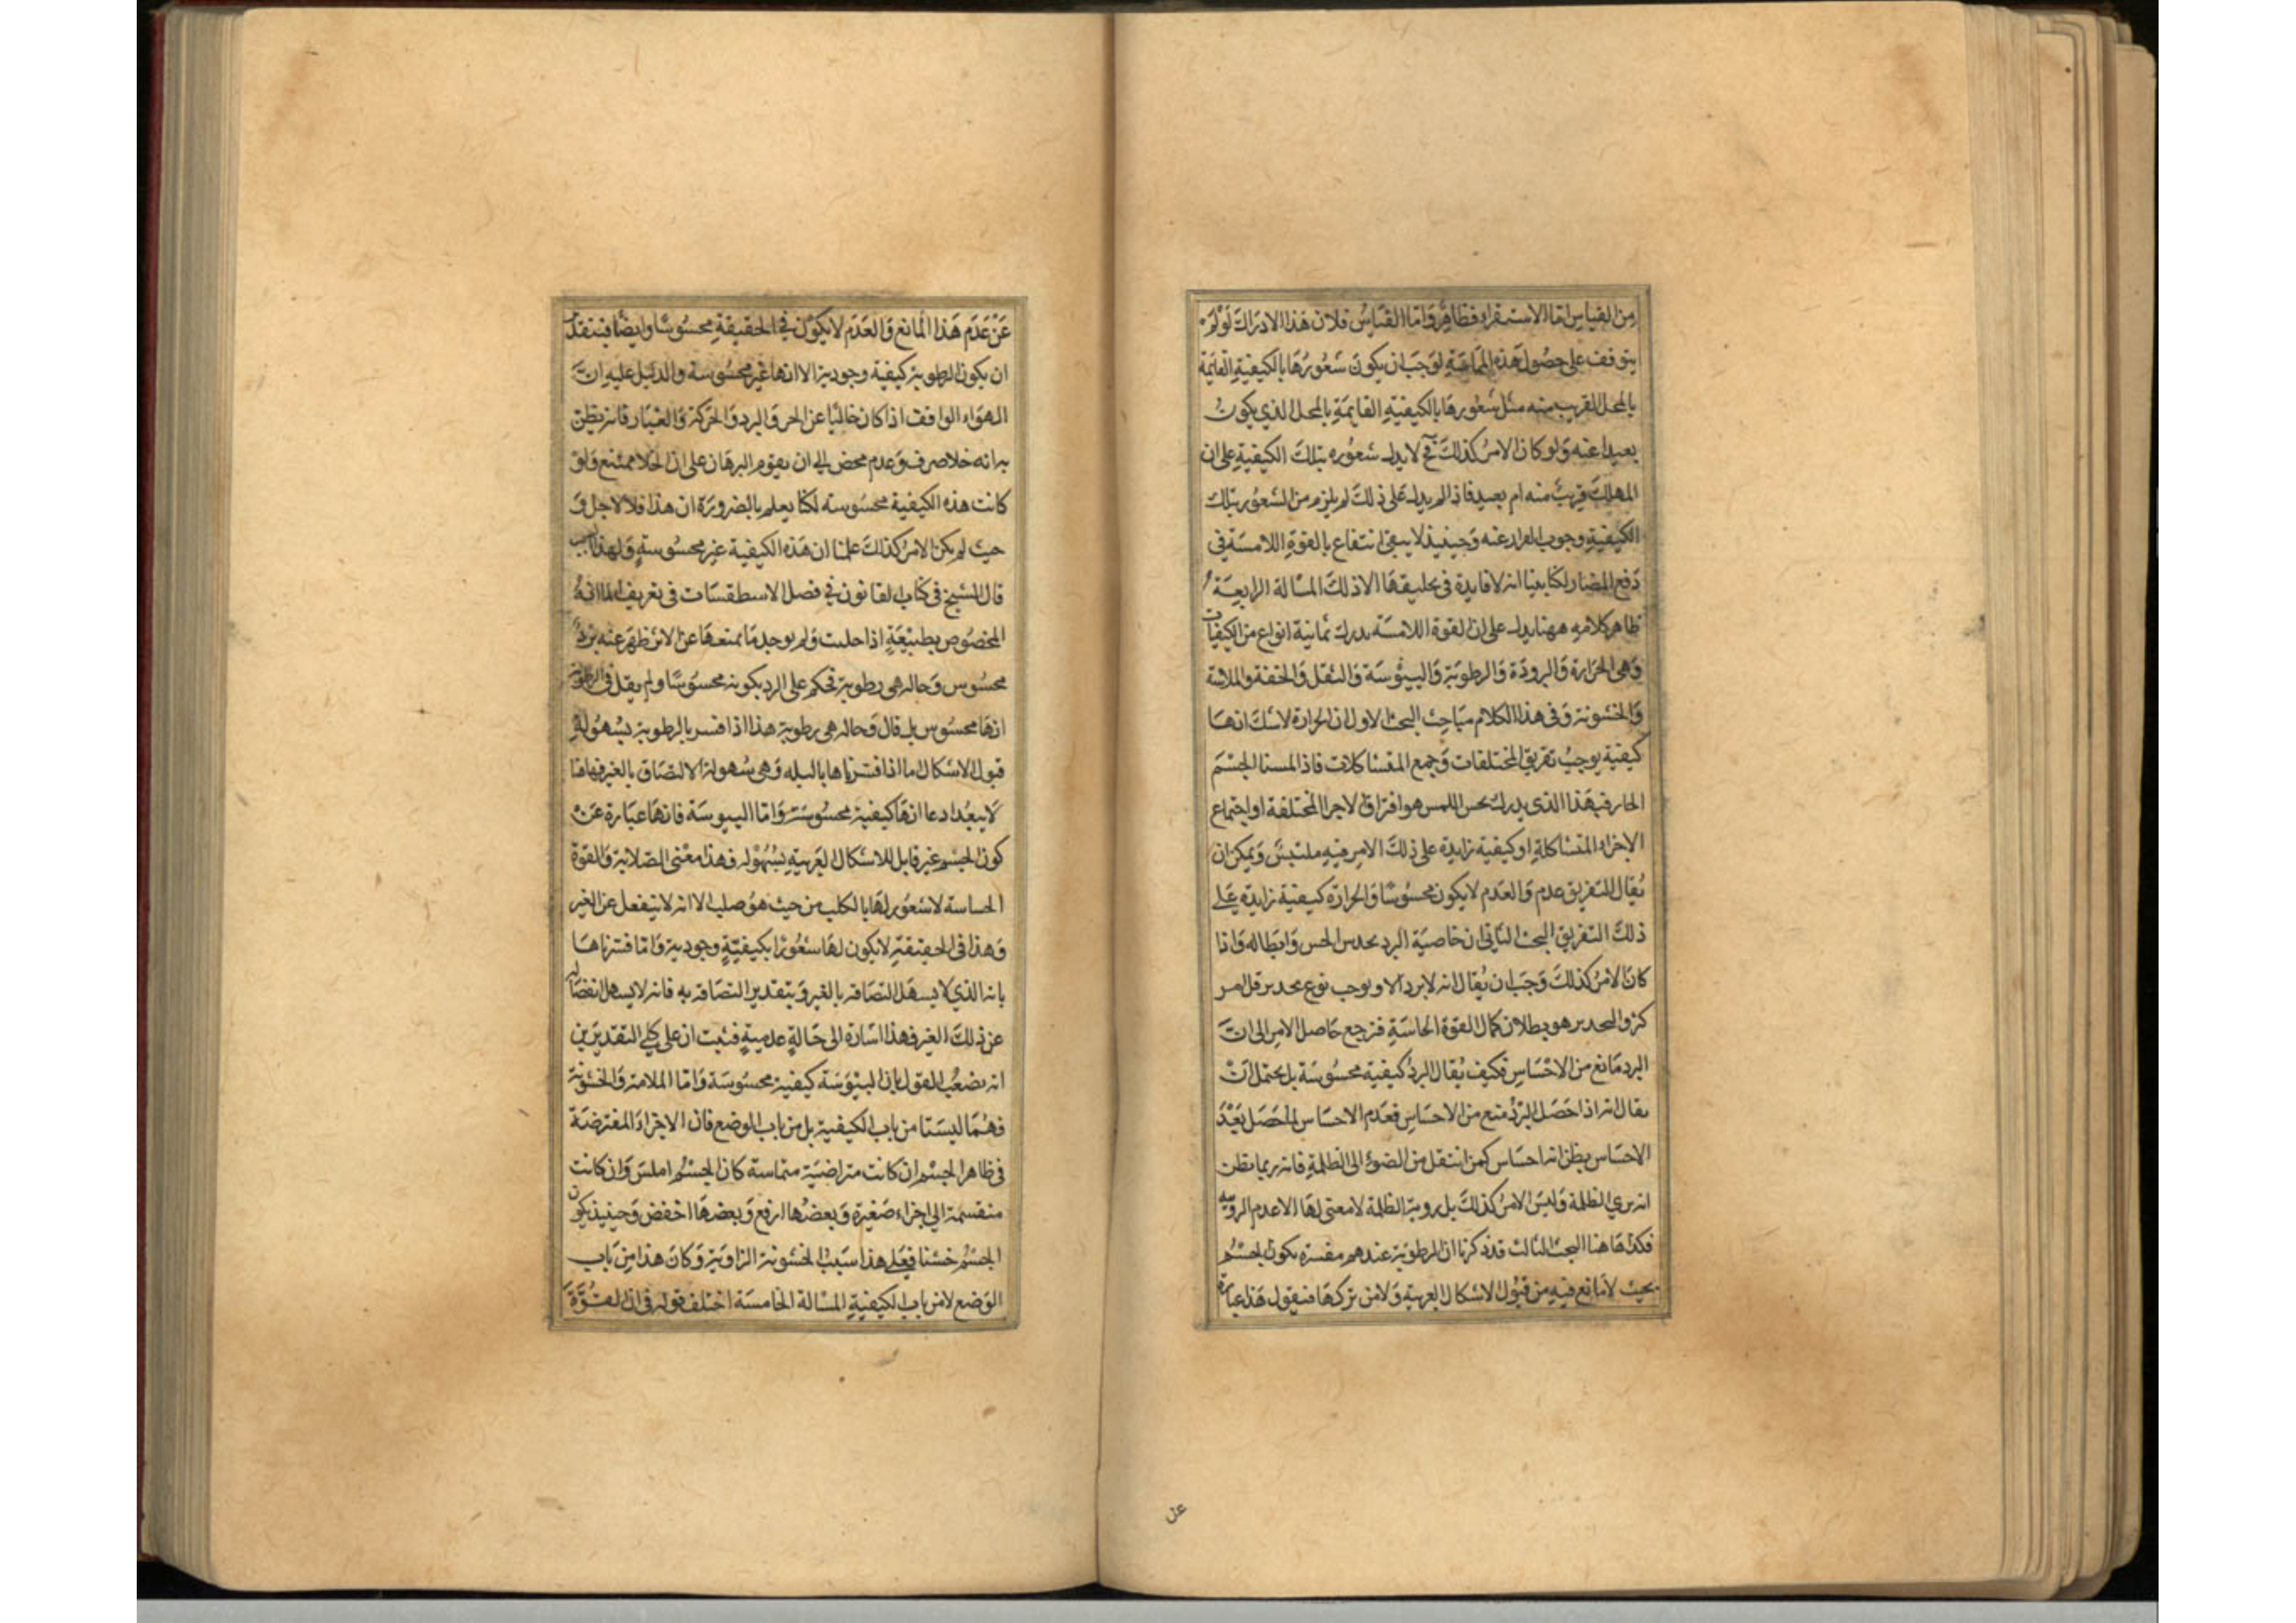 من القياس اما الاستقراء فظاهر واما القياس فلان هذا الادراك لو لم
يتوقف على حصول هذه المماسة لوجب ان يكون شعورها بالكيفية القايمة
بالمحل القريب منه مثل شعورها بالكيفية القايمة بالمحل الذي يكون
بعيدا عنه ولو كان الامر كذلك فح لا يدل شعوره بتلك الكيفية على ان
المهلك قريب منه ام بعيد فاذا لم يدل على ذلك لم يلزم من الشعور بتلك
الكيفية وجوب الفرار عنه وحينيذ لا يبقى انتفاع بالقوة اللامسة في
دفع المضار لكنا بينا انه لا فايدة في تخليقها الا ذلك المسالة الرابعة
ظاهر كلامه ههنا يدل على ان القوة اللامسة يدرك ثمانية انواع من الكيفيات
وهي الحرارة والبرودة والرطوبة واليبوسة والثقل والخفة والملاسة
والخشونة وفي هذا الكلام مباحث البحث الاول ان الحرارة لا شك انها
كيفية يوجب تفريق المختلفات وجمع المتشاكلات فاذا لمسنا الجسم
الحار فهذا الذي يدرك بحس اللمس هو افتراق الاجزا المختلفة او اجتماع
الاجزاء المتشاكلة او كيفية زايدة على ذلك الامر فيه ملتبس ويمكن ان
يقال التفريق عدم والعدم لا يكون محسوسا والحرارة كيفية زايدة على
ذلك التفريق البحث الثاني ان خاصية البرد بخدر الحس وابطاله واذا
كان الامر كذلك وجب ان يقال انه لا برد الا ويوجب نوع تخدير قل ام
كثر والتخدير هو بطلان كمال القوة الحاسة فرجع حاصل الامر الى ان
البرد مانع من الاحساس فكيف يقال البرد كيفية محسوسة بل يحتمل ان
يقال انه اذا حصل البرد منع من الاحساس فعدم الاحساس لما حصل بعد
الاحساس يظن انه احساس كمن انتقل من الضوء الى الظلمة فانه ربما يظن
انه يرى الظلمة وليس الامر كذلك بل روية الظلمة لا معنى لها الا عدم الروية
فكذا هاهنا البحث الثالث قد ذكرنا ان الرطوبة عندهم مفسرة بكون الجسم
بحيث لا مانع فيه من قبول الاشكال الغريبة ولا من تركها فنقول هذا عبارة
عن
عن عدم هذا المانع والعدم لا يكون في الحقيقة محسوسا وايضا فبتقدير
ان يكون الرطوبة كيفية وجودية الا انها غير محسوسة والدليل عليه ان
الهواء الواقف اذا كان خاليا عن الحر والبرد والحركة والغبار فانه يظن
به انه خلا صرف وعدم محض الى ان يقوم البرهان على ان الخلا ممتنع ولو
كانت هذه الكيفية محسوسة لكنا يعلم بالضرورة ان هذا فلا لاجل و
حيث لم يكن الامر كذلك علمنا ان هذه الكيفية غير محسوسة ولهذا السبب
قال الشيخ في كتاب القانون في فصل الاسطقسات في تعريف الما انه
المخصوص بطبيعة اذا خليت ولم يوجد ما يمنعها عن الاثر ظهر عنه برد
محسوس وحاله هي رطوبة فحكم على البرد بكونه محسوسا ولم يقل في الرطوبة
انها محسوس بل قال وحاله هي رطوبة هذا اذا فسر بالرطوبة بسهولة
قبول الاشكال اما اذا فسرناها بالبله وهي سهولة الالتصاق بالغير فهاهنا
لا يبعد ادعا انها كيفية محسوسة واما اليبوسة فانها عبارة عن
كون الجسم غير قابل للاشكال الغريبة بسهوله فهذا معنى الصلابة والقوة
الحساسة لا شعور لها بالكلب من حيث هو صلب الا انه لا ينفعل عن الغير
وهذا في الحقيقة لا يكون لها شعورا بكيفية وجودية واما فسرناها
بانه الذي لا يسهل التصاقه بالغير وبتقدير التصاقه به فانه لا يسهل انفصاله
عن ذلك الغير فهذا اشارة الى حالة عدمية فثبت ان على كلي التقديرين
انه يصعب القول بان اليبوسة كيفية محسوسة واما الملاسة والخشونة
فهما ليستا من باب الكيفية بل من باب الوضع فان الاجزا المفترضة
في ظاهر الجسم ان كانت متراضية متماسة كان الجسم املس وان كانت
منقسمة الى اجزاء صغيرة وبعضها ارفع وبعضها اخفض وحينيذ يكون
الجسم خشنا فعلى هذا سبب الخشونة الزاوية وكان هذا من باب
الوضع لا من باب الكيفية المسالة الخامسة اختلف قوله في ان القوة